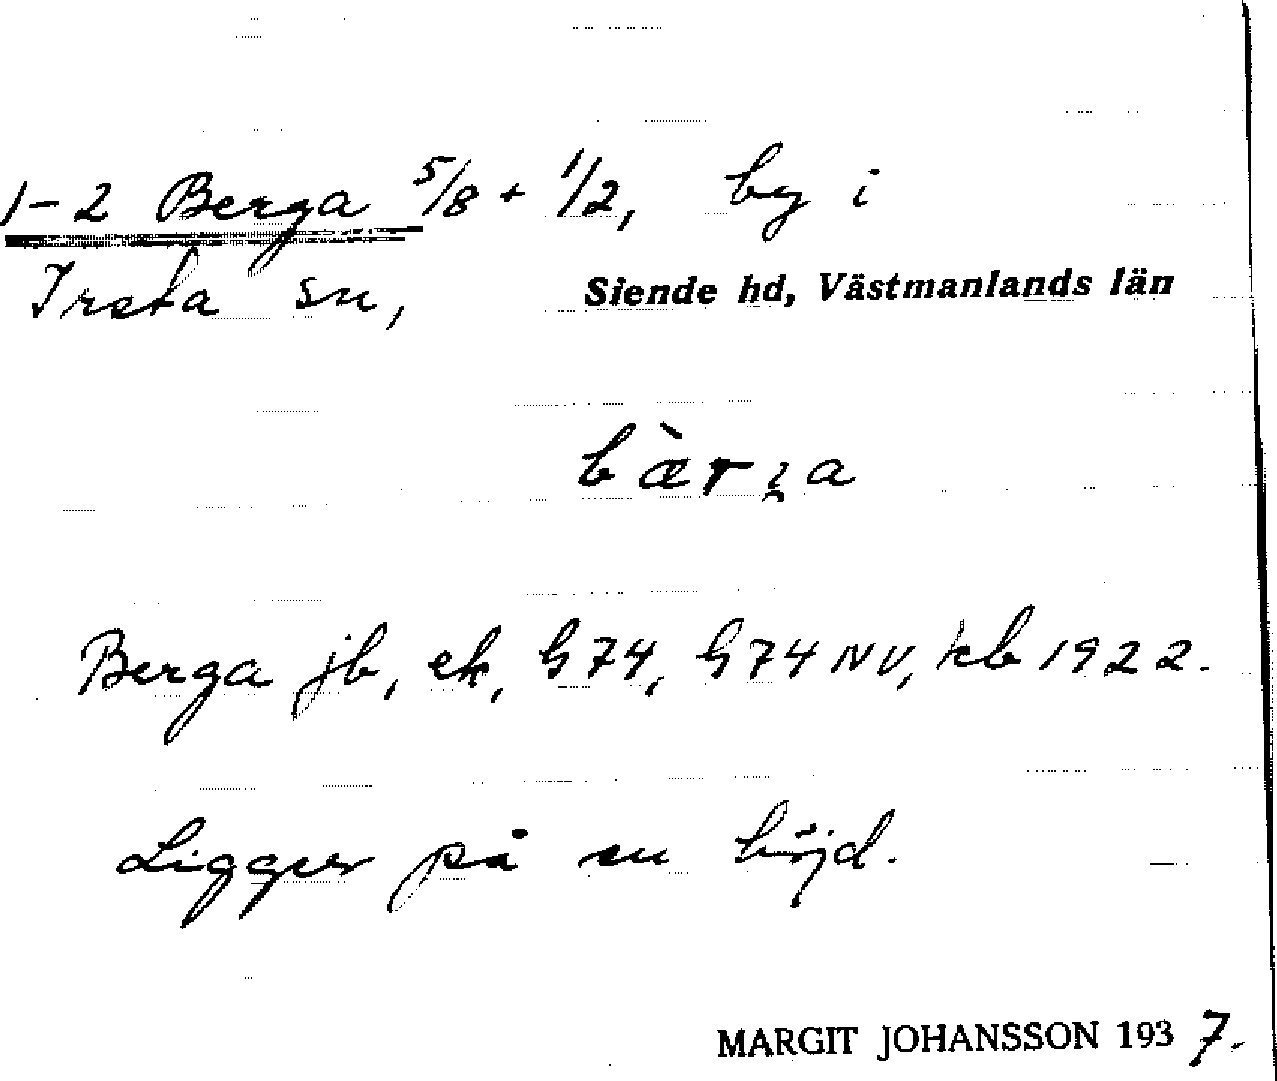 1-2 Berga 5/8 + 1/2, by i
Irsta sn, Siende hd, Västmanlands län
bàrga
Berga jb, ek, G 74, G 74 NV, kb 1922.
Ligger på en höjd.
MARGIT JOHANSSON 1937.